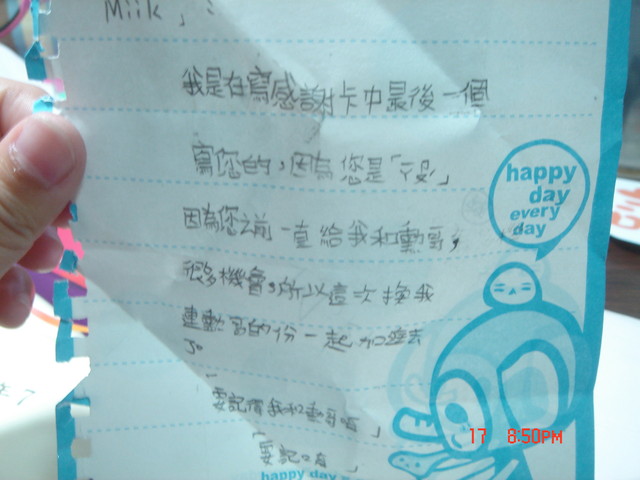 Miik」:
我是在寫感謝卡中最後一個
寫您的,因為您是「
因為您之前一直給我和勳哥,
很多機會,所以這次換我
連勳哥的份一起加進去
了。
「要記得我和勳哥唷」
「要記
happy
day
every
day
happy day
17 8:50PM